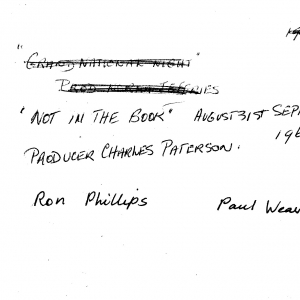 "GRAND NATIONAL NIGHT"
PROD NORMA JEFFRIES
"NOT IN THE BOOK" AUGUST 31ST SEPT
196
PRODUCER CHARLES PATERSON.
Ron Phillips Paul Weav